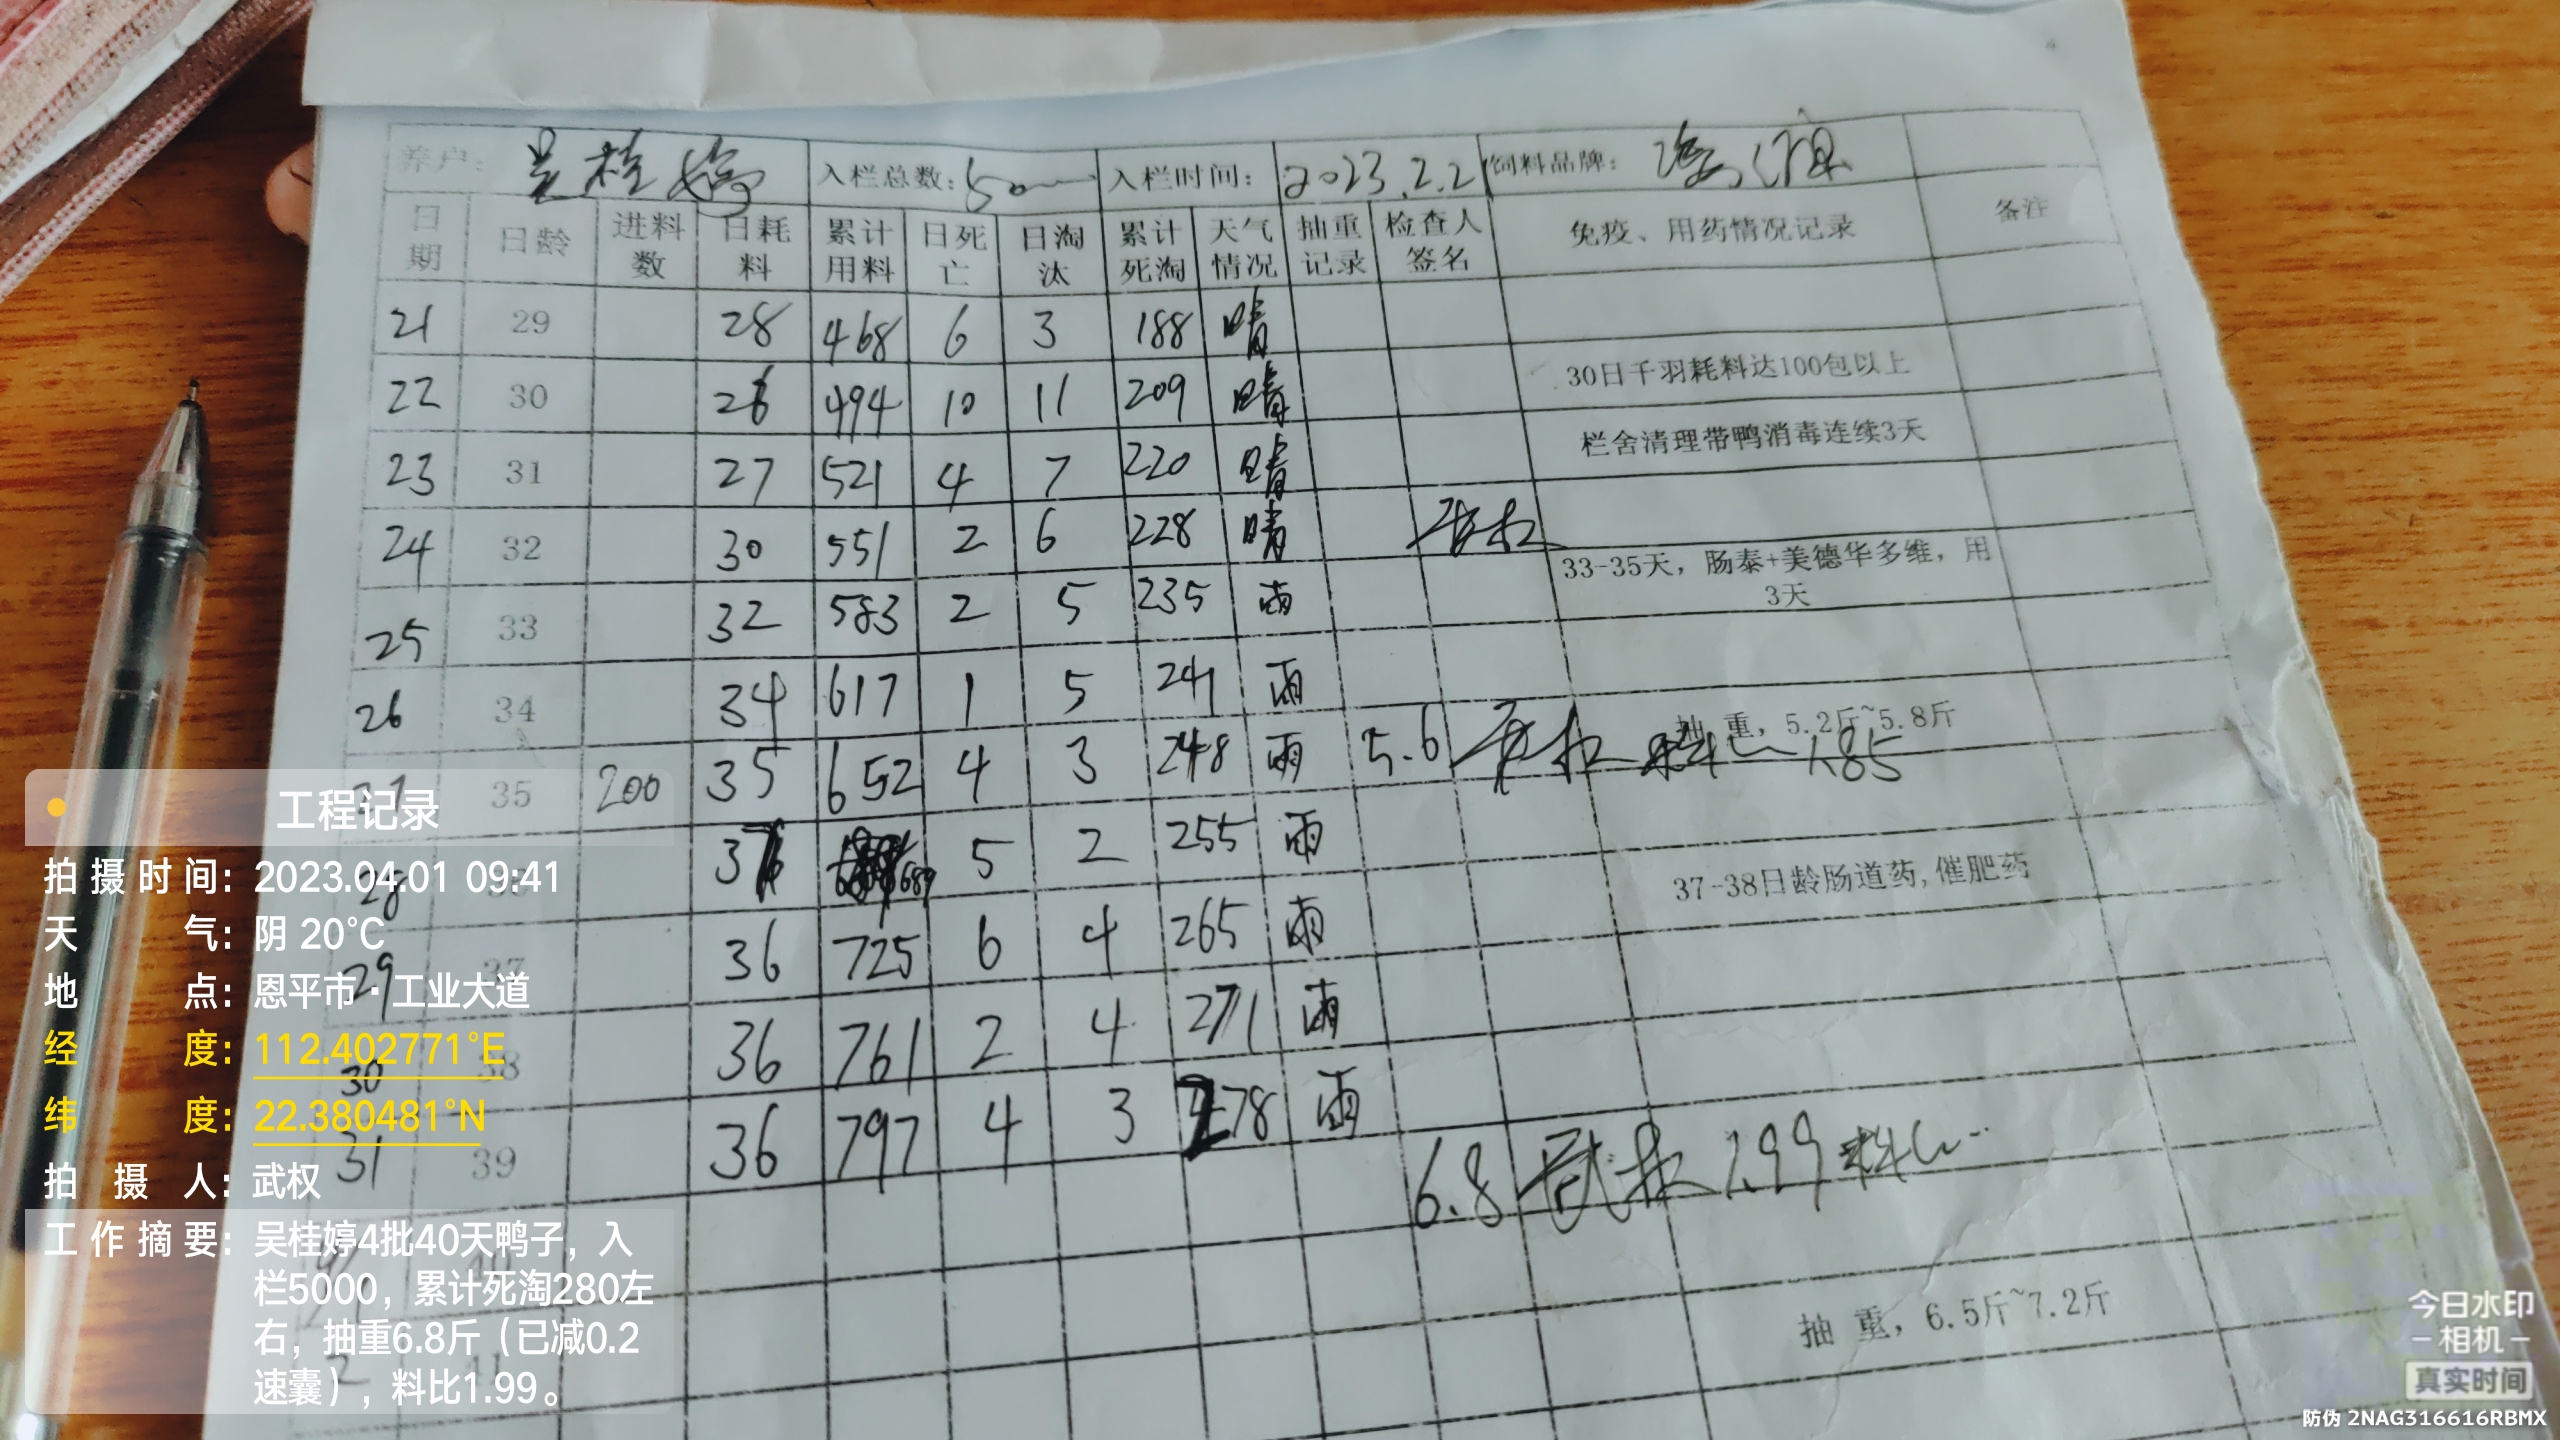 养户： 吴桂婷 入栏总数：5000 入栏时间： 2023.2.21 饲料品牌：
日期 日龄 进料数 日耗料 累计用料 日死亡 日淘汰 累计死淘 天气情况 抽重记录 检查人签名 免疫、用药情况记录 备注
21 29 28 468 6 3 188 晴
22 30 26 494 10 11 209 晴 30日千羽耗料达100包以上
23 31 27 521 4 7 220 晴 栏舍清理带鸭消毒连续3天
24 32 30 551 2 6 228 晴 武权
25 33 32 583 2 5 235 雨 33-35天，肠泰+美德华多维，用3天
26 34 34 617 1 5 241 雨
27 35 200 35 652 4 3 248 雨 5.6 武权 抽 重，5.2斤~5.8斤 料比 1.85
28 36 37 689 5 2 255 雨
29 37 36 725 6 4 265 雨 37-38日龄肠道药,催肥药
30 38 36 761 2 4 271 雨
31 39 36 797 4 3 278 雨
6.8 武权 1.99 料比
抽 重，6.5斤~7.2斤
工程记录
拍摄时间：2023.04.01 09:41
天气：阴 20℃
地点：恩平市·工业大道
经度：112.402771°E
纬度：22.380481°N
拍摄人：武权
工作摘要：吴桂婷4批40天鸭子，入
栏5000，累计死淘280左
右，抽重6.8斤（已减0.2
速囊），料比1.99。
今日水印
相机
真实时间
防伪 2NAG316616RBMX